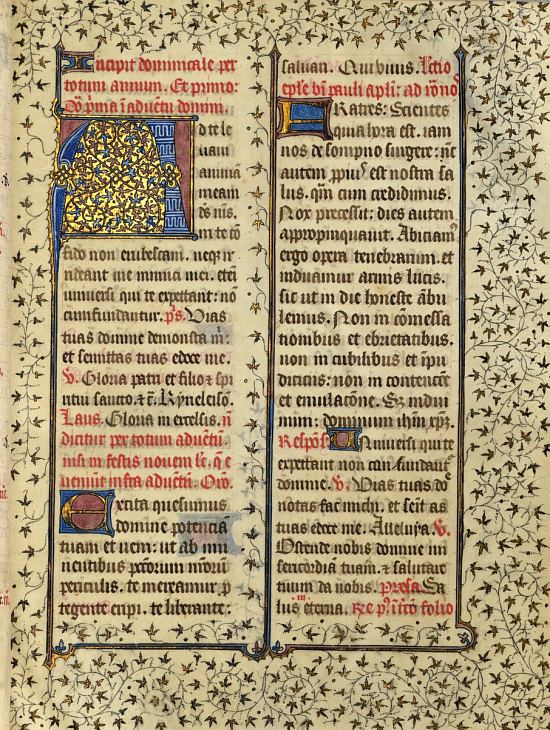 Incipit dominicale per
totum annum. Et primo:
D d te le
uaui
animā
meam
de' m̄s.
in te cō
fido non erubescam. neqz ir
rideant me inimici mei. eteī
uniuersi qui te expectant: nō
confundantur. p̄s. Vias
tuas domine demonstra m̄:
et semitas tuas edoce me.
V. Gloria patri et filio ⁊ spi
ritui sancto. ⁊ c̄. Kyrieleisō.
Laus. Gloria in excelsis. nō
dicitur per totum aduētū.
nisi in festis nouem lc̄. q̄ e
ueniūt infra aduētū. Orō.
Excita quesumus
domine potenciā
tuam et ueni: ut ab imi
nentibus pctōrum nr̄orū
periculis. te mereamur p
tegente eripi. te liberante:
saluari. Qui uiuis. Lctīo
eple bī pauli apli: ad rōnōs
Fratres: Scientes
quia hora est. iam
nos de sompno surgere: nūc
autem ppius est nostra sa
lus. qm̄ cum credidimus.
Nox precessit: dies autem
appropinquauit. Abiciamꝰ
ergo opera tenebrarum. et
induamur armis lucis.
sic ut in die honeste ābu
lemus. Non in comessa
tionibus et ebrietatibus.
non in cubilibus et ipu
diciciis: non in contencōē
et emulacōne. Sz indui
mini: dominum ihm̄ xp̄m.
Respōs. Uniuersi qui te
expectant non confundantᷣ
domine. V. Vias tuas dn̄e
notas fac michi. et semit as
tuas edoce me. Alleluya. V.
Ostende nobis domine mi
sericordiam tuam. ⁊ salutare
tuum da nobis. Prosa. Sa
lus eterna. Re folio